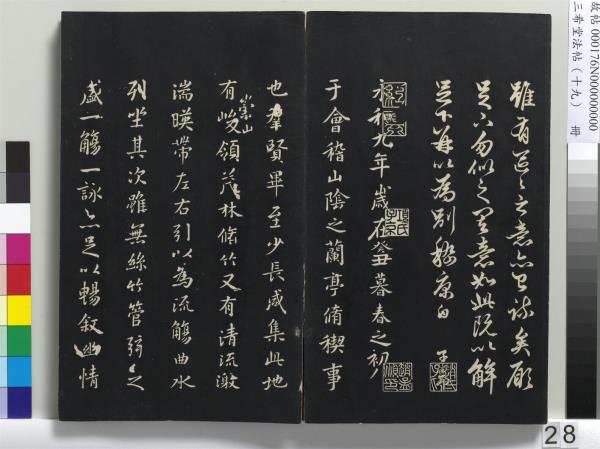 故帖 000176N000000000
三希堂法帖（十九）　冊
雖有區區之意亦已疏矣願
足下勿似之其意如此既以解
足下并以為別嵇康白
子
永和九年歲在癸丑暮春之初
于會稽山陰之蘭亭脩稧事
也羣賢畢至少長咸集此地
有崇山峻領茂林脩竹又有清流激
湍暎帶左右引以為流觴曲水
列坐其次雖無絲竹管弦之
盛一觴一詠亦足以暢敘幽情
28